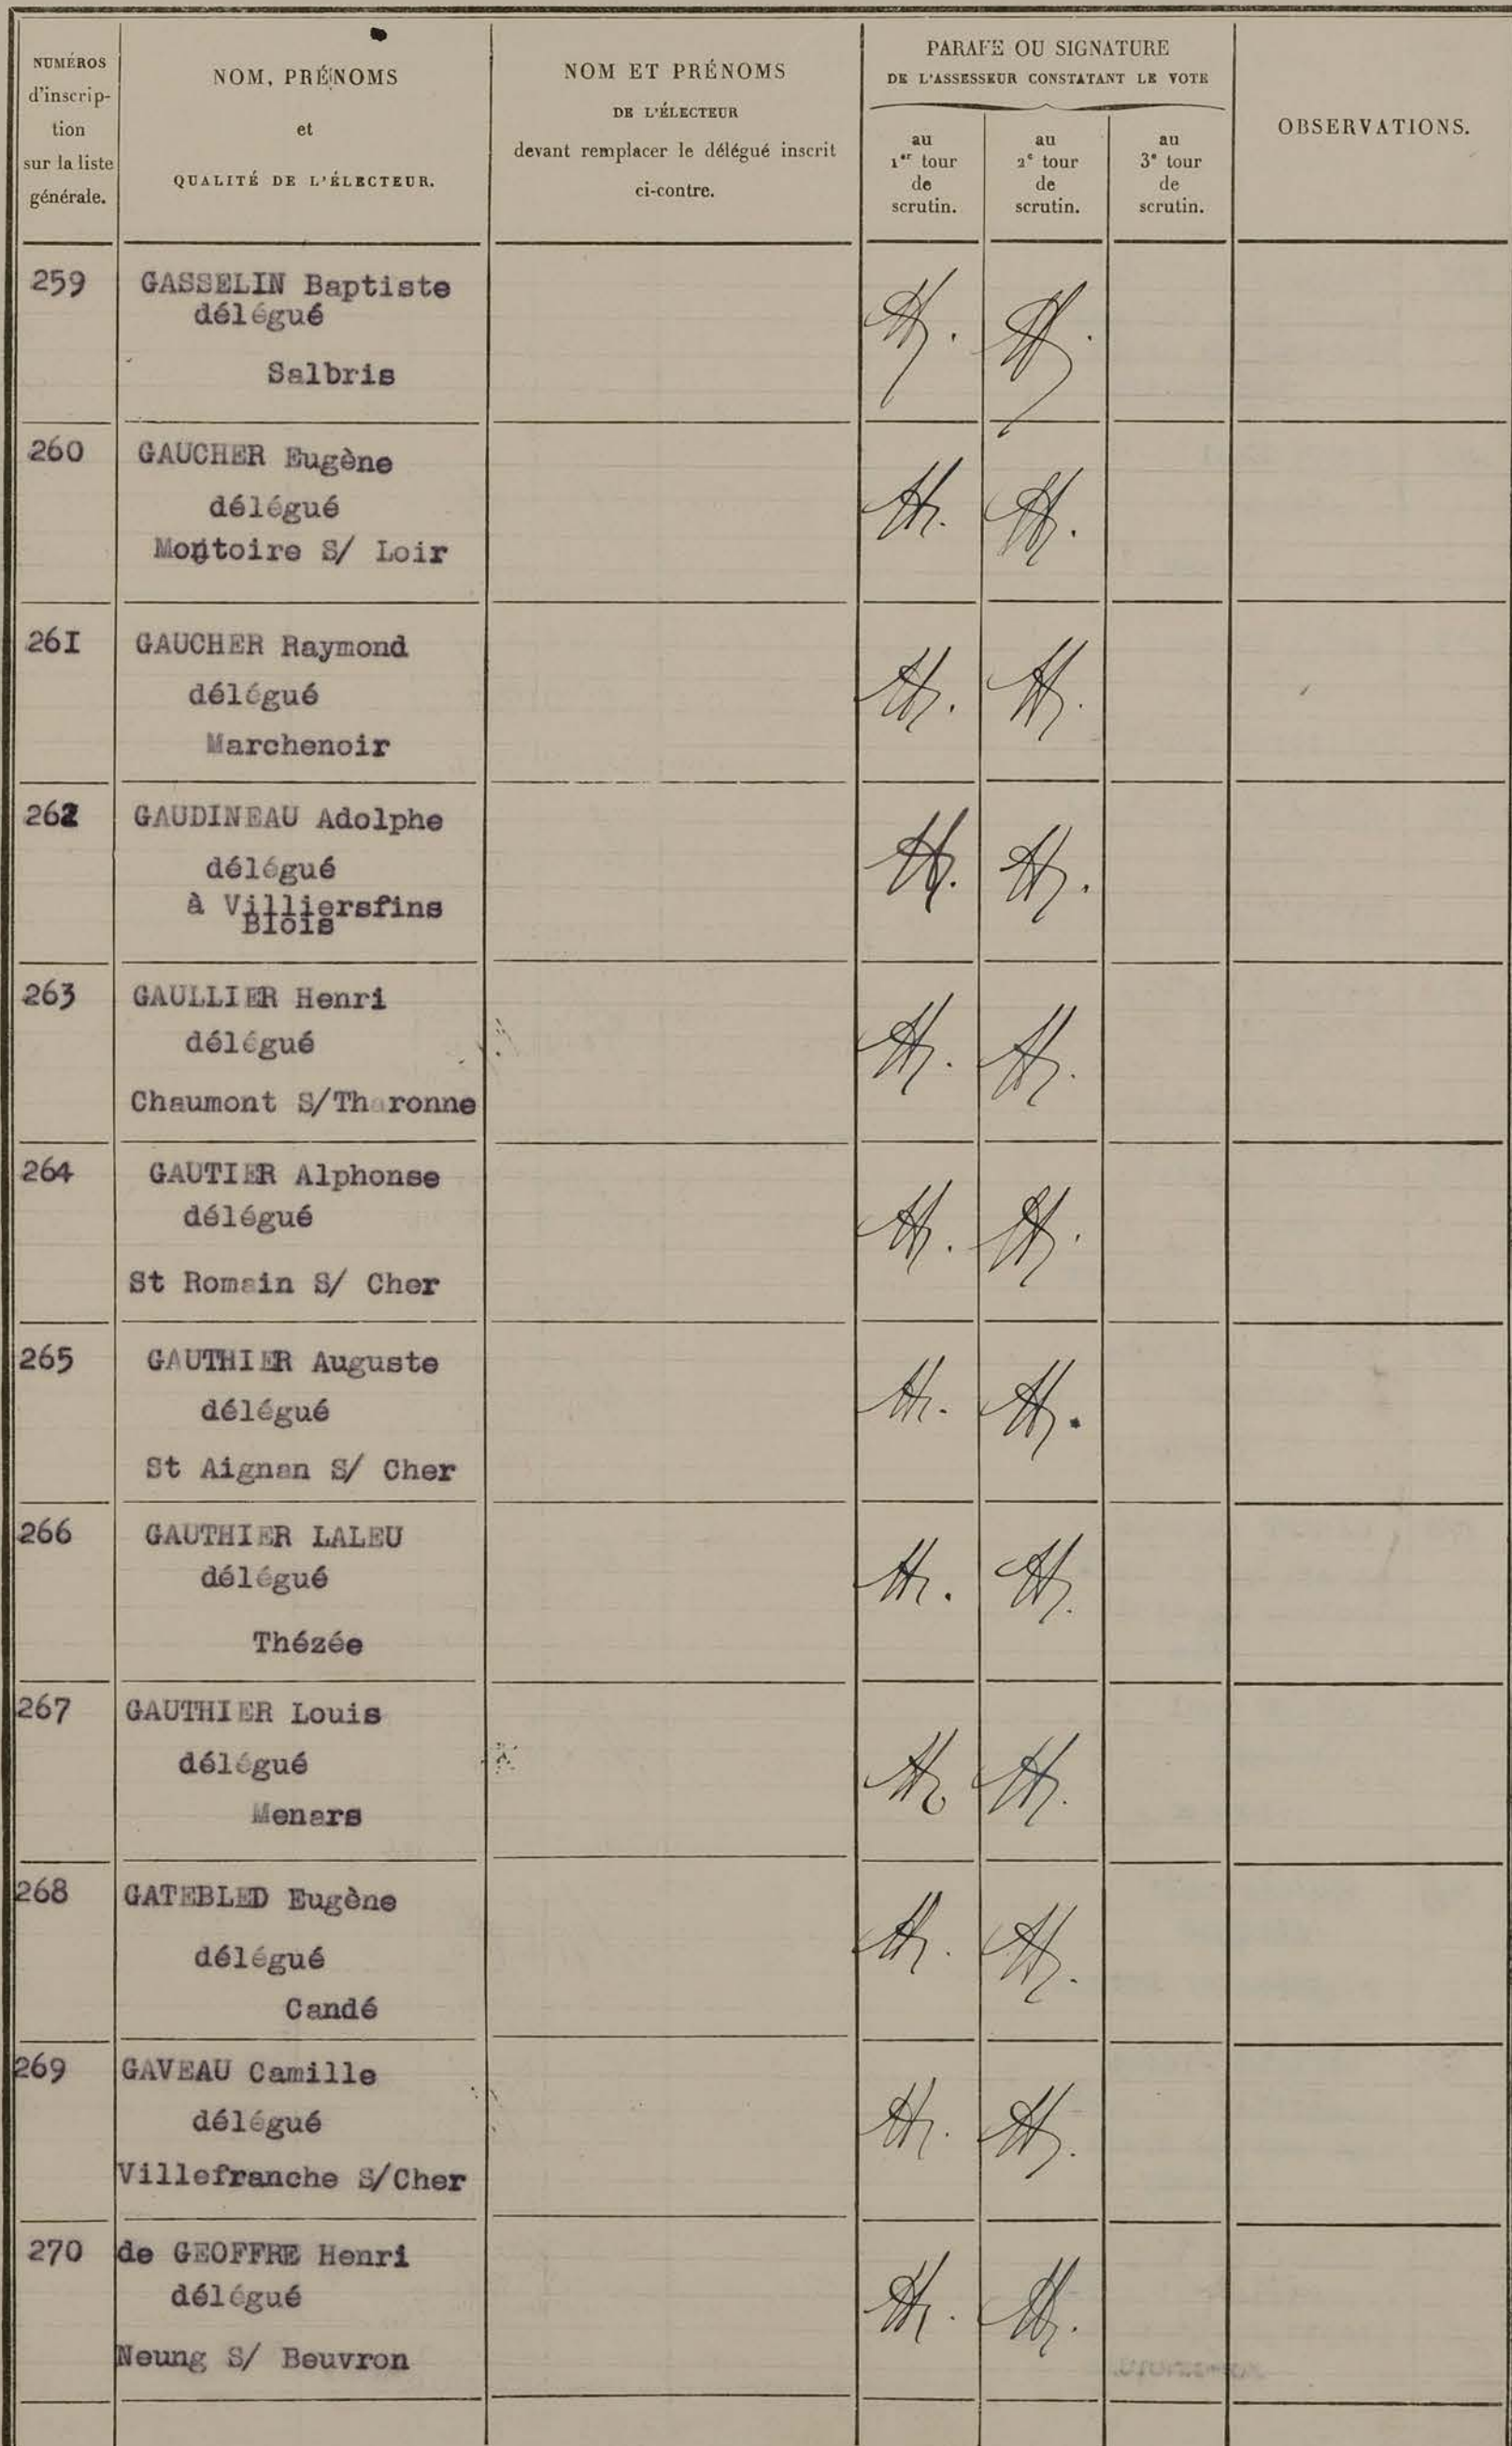 NUMÉROS
d'inscrip-
tion
sur la liste
générale.
NOM, PRÉNOMS
et
QUALITÉ DE L'ÉLECTEUR.
NOM ET PRÉNOMS
DE L'ÉLECTEUR
devant remplacer le délégué inscrit
ci-contre.
PARAFE OU SIGNATURE
DE L'ASSESSEUR CONSTATANT LE VOTE
au
1er tour
de
scrutin.
au
2e tour
de
scrutin.
au
3e tour
de
scrutin.
OBSERVATIONS.
259 GASSELIN Baptiste
délégué
Salbris
260 GAUCHER Eugène
délégué
Montoire S/ Loir
26I GAUCHER Raymond
délégué
Marchenoir
262 GAUDINEAU Adolphe
délégué
à Villiersfins
Blois
263 GAULLIER Henri
délégué
Chaumont S/Tharonne
264 GAUTIER Alphonse
délégué
St Romain S/ Cher
265 GAUTHIER Auguste
délégué
St Aignan S/ Cher
266 GAUTHIER LALEU
délégué
Thézée
267 GAUTHIER Louis
délégué
Menars
268 GATEBLED Eugène
délégué
Candé
269 GAVEAU Camille
délégué
Villefranche S/Cher
270 de GEOFFRE Henri
délégué
Neung S/ Beuvron